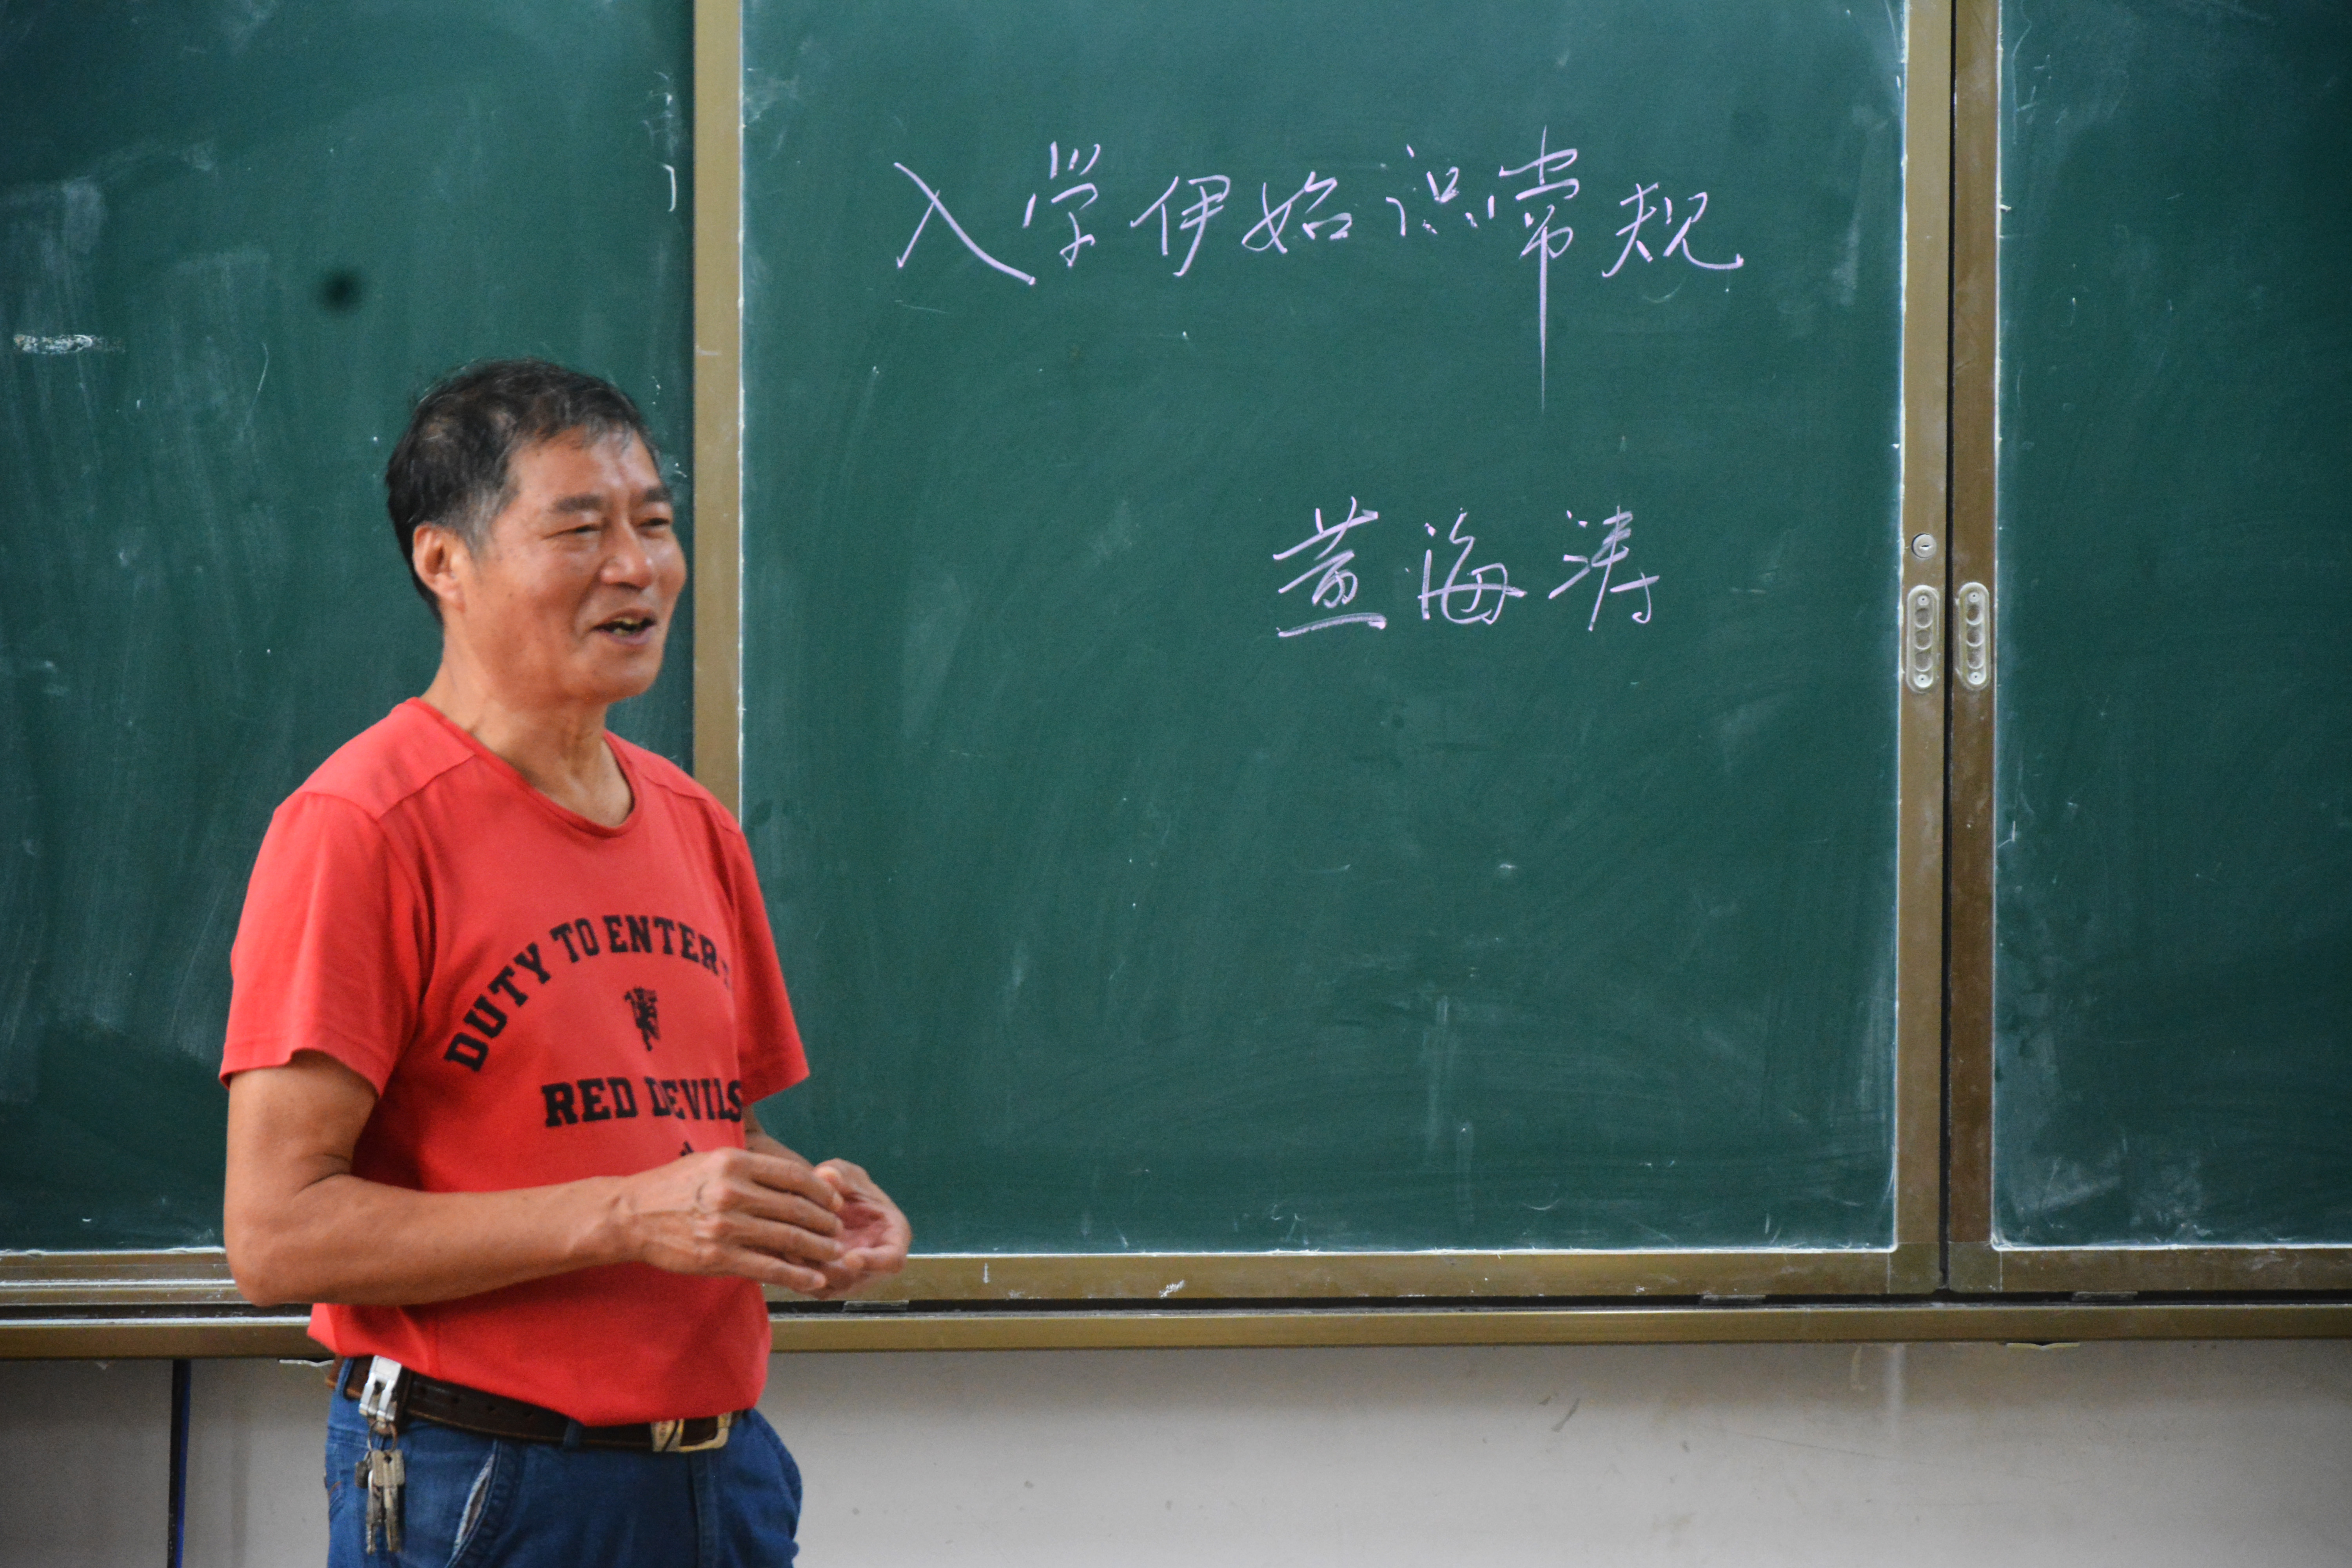 入学伊始识常规
黄海涛
DUTY TO ENTER
RED DEVILS